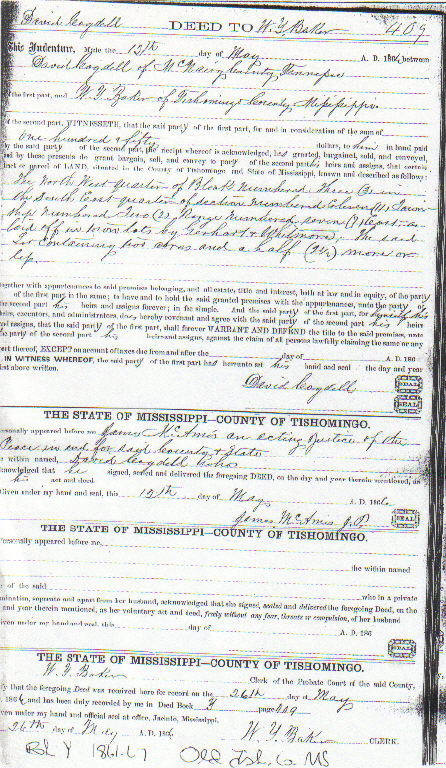 David Cogdell DEED TO W. Y. Baker 409
This Indenture, Made the 12th day of May A. D. 1866 between
David Cogdell of McNairy County Tennessee
of the first part, and W. Y. Baker of Tishomingo County Mississippi
of the second part, WITNESSETH, that the said party of the first part, for and in consideration of the sum of
One hundred & fifty dollars, to him in hand paid
by the said party of the second part, the receipt whereof is acknowledged, has granted, bargained, sold, and conveyed,
and by these presents do grant, bargain, sell, and convey to party of the second part, his heirs and assigns, that certain
tract or parcel of LAND, situated in the County of Tishomingo and State of Mississippi, known and described as follows:
The North West quarter of Block Numbered Three (3) in
the South East quarter of section Numbered Eleven (11) Town
ship numbered Two (2), Range Numbered seven (7) East as
laid off in town lots by & the said
Lot containing two acres and a half (2½) more or
less
together with appurtenances to said premises belonging, and all estate, title and interest, both at law and in equity, of the party
of the first part in the same; to have and to hold the said granted premises with the appurtenances, unto the party of
the second part his heirs and assigns forever; in fee simple. And the said party of the first part, for himself his
heirs, executors, and administrators, does hereby covenant and agree with the said party of the second part his heirs
and assigns, that the said party of the first part, shall forever WARRANT AND DEFEND the title to the said premises, unto
the party of the second part his heirs and assigns, against the claim of all persons lawfully claiming the same or any
part thereof, EXCEPT on account of taxes due from and after the day of A. D. 186
IN WITNESS WHEREOF, the said party of the first part has hereunto set his hand and seal the day and year
first above written.
David Cogdell SEAL
SEAL
THE STATE OF MISSISSIPPI—COUNTY OF TISHOMINGO.
Personally appeared before me James McAmis an acting Justice of the
Peace in and for said County & State
the within named, David Cogdell who
acknowledged that he signed, sealed and delivered the foregoing DEED, on the day and year therein mentioned, as
his act and deed.
Given under my hand and seal, this 12th day of May A. D. 1866
James McAmis J.P. SEAL
THE STATE OF MISSISSIPPI—COUNTY OF TISHOMINGO.
Personally appeared before me,
the within named
wife of the said who in a private
examination, separate and apart from her husband, acknowledged that she signed, sealed and delivered the foregoing Deed, on the
day and year therein mentioned, as her voluntary act and deed, freely without any fear, threats or compulsion, of her husband
Given under my hand and seal, this day of A. D. 186
SEAL
THE STATE OF MISSISSIPPI—COUNTY OF TISHOMINGO.
W. Y. Baker Clerk of the Probate Court of the said County,
certify that the foregoing Deed was received here for record on the 26th day of May
1866 and has been duly recorded by me in Deed Book Y page 409
Given under my hand and official seal at office, Jacinto, Mississippi,
26th day of May A. D. 1866
W. Y. Baker CLERK.
Bk Y 1861-67 Old Tish. Co MS